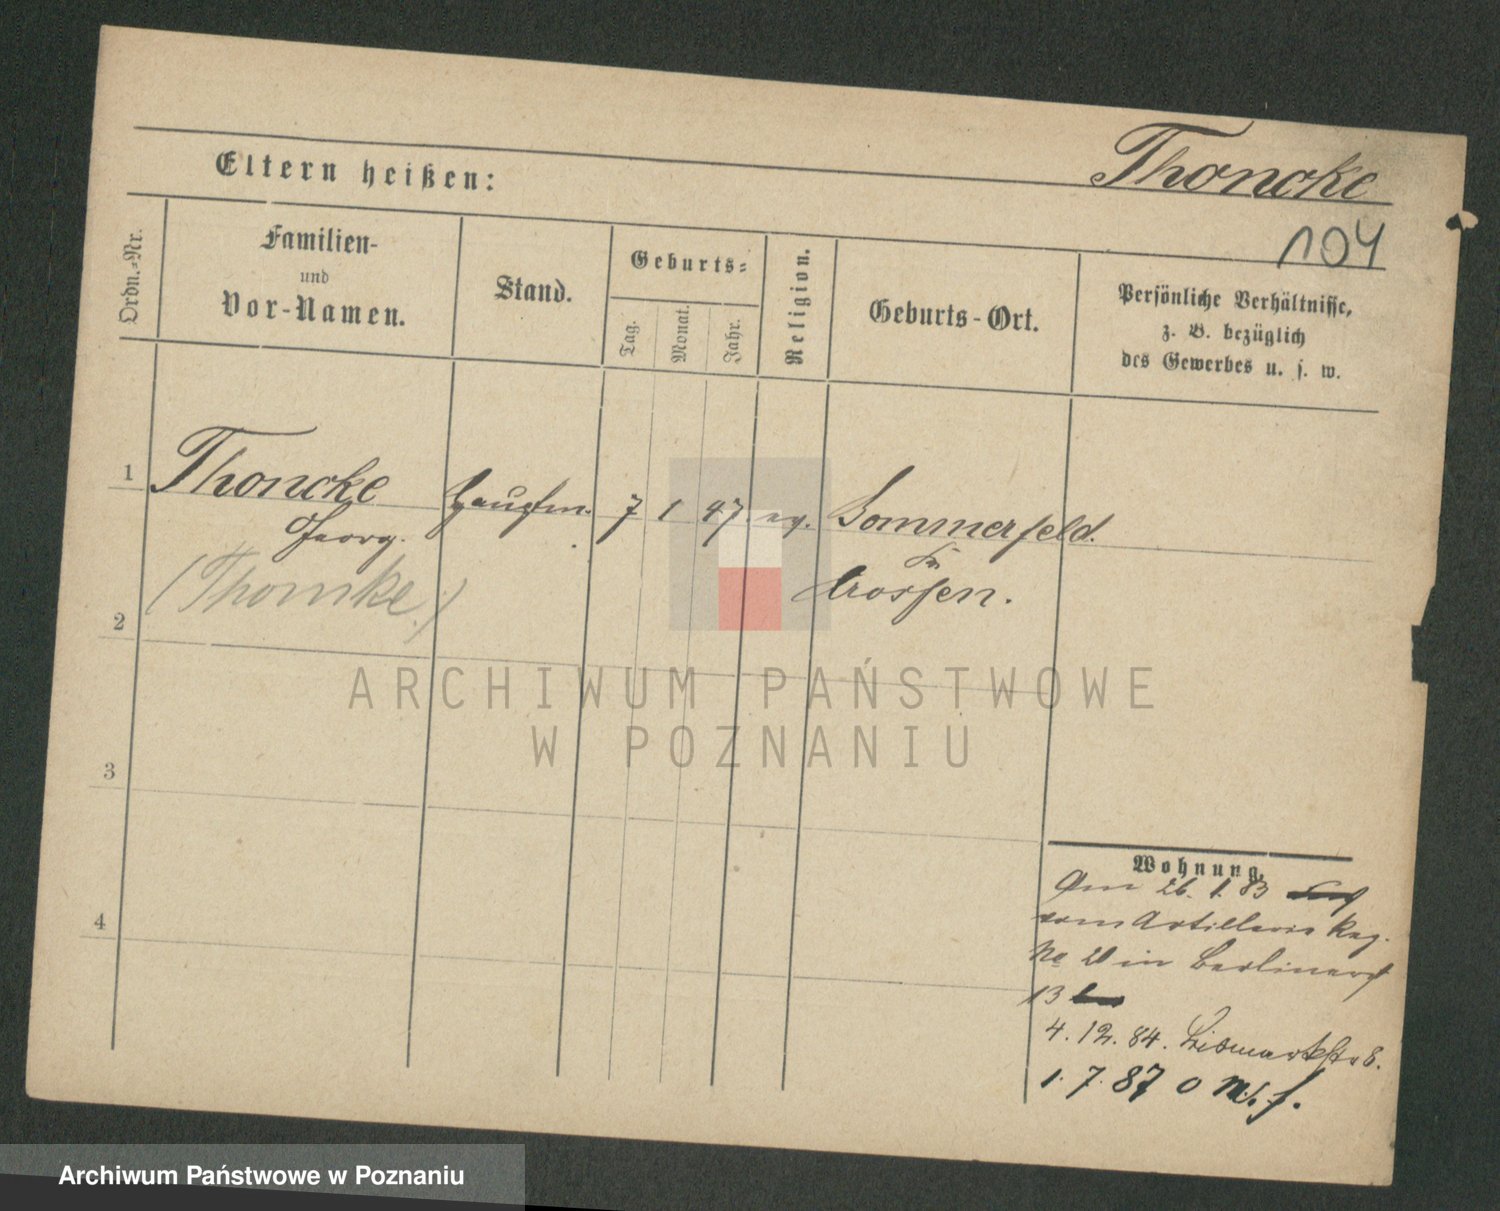 Thoncke
Eltern heißen:
104
Ordn.-Nr.
Familien-
und
Vor-Namen.
Stand.
Geburts-
Tag.
Monat.
Jahr.
Religion.
Geburts-Ort.
Persönliche Verhältnisse,
z. B. bezüglich
des Gewerbes u. s. w.
1
Thoncke Hauptm. 7 1 47. ev. Sommerfeld.
Georg. Kr.
(Thomke.) Crossen.
2
ARCHIWUM PAŃSTWOWE
W POZNANIU
3
Wohnung.
Am 26. 1. 83
vom Artillerie Reg.
No 20 in Berlinerst
13
4
4. 12. 84. Bismarkstr 8.
1. 7. 87 0
Archiwum Państwowe w Poznaniu